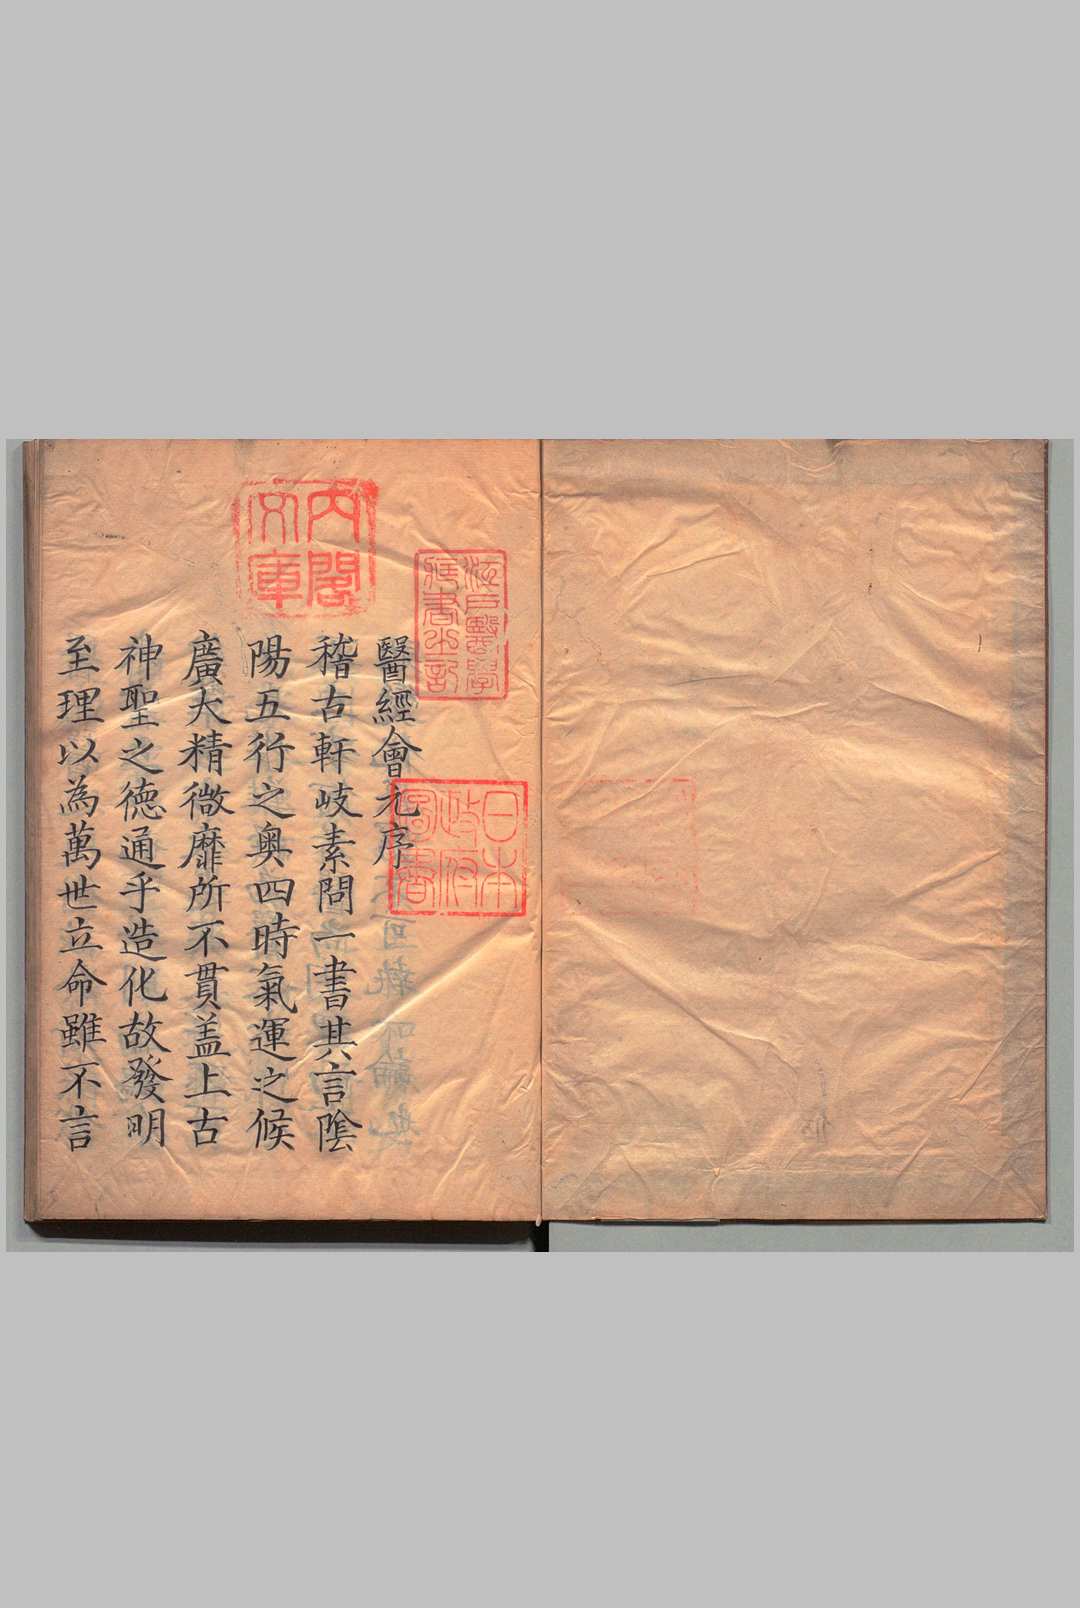 醫經會元序
稽古軒岐素問一書其言陰
陽五行之奥四時氣運之候
廣大精微靡所不貫盖上古
神聖之德通乎造化故發明
至理以為萬世立命雖不言
江戸醫學
藏書之記
日本
政府
圖書
內閣
文庫